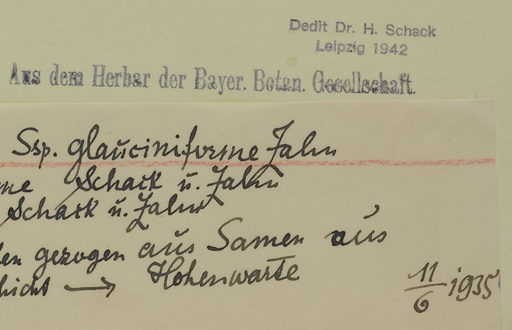 Dedit Dr. H. Schack
Leipzig 1942
Aus dem Herbar der Bayer. Botan. Gesellschaft.
Ssp. glauciniforme Zahn
me Schack u. Zahn
Schack u. Zahn
en gezogen aus Samen aus
hicht → Hohenwarte
11/6 1935